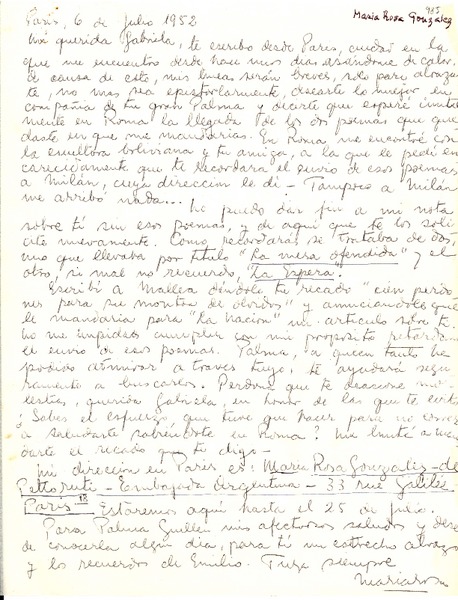 985
Maria Rosa Gonzalez
Paris, 6 de Julio 1952
Mi querida Gabriela, te escribo desde Paris, ciudad en la
que me encuentro desde hace unos dias asándome de calor.
A causa de esto, mis lineas serán breves, solo para abrazar
te, no mas sea epistolarmente, desearte lo mejor, en
compañia de tu gran Palma y decirte que esperé inutil
mente en Roma la llegada de los dos poemas que que
daste en que me mandarias. En Roma me encontré con
la escultora boliviana y tu amiga, a la que le pedí en
carecidamente que te recordara el envio de esos poemas
a Milán, cuya direccion le di - Tampoco a Milán
me arribó nada...
No puedo dar fin a mi nota
sobre ti sin esos poemas, y de aqui que te los soli
cite nuevamente. Como recordarás se trataba de dos,
uno que llevaba por título "La mera ofendida" y el
otro, si mal no recuerdo, "La Espera".
Escribí a Mallea dándole tu recado "cien perdo
nes para su montón de olvidos" y anunciándole que
le mandaria para "La Nacion" mi articulo sobre ti.
No me impidas cumplir con mi proposito retardan
le envio de esos poemas. Palma, a quien tanto he
podido admirar a través tuyo, te ayudará segu
ramente a buscarlos. Perdona que te ocasione mo
lestias, querida Gabriela, en honor de las que te evité
¿Sabes el esfuerzo que tuve que hacer para no correr
a saludarte sabiéndote en Roma? Me limité a man
darte el recado que te digo -
Mi direccion en Paris es: Maria Rosa Gonzalez - de
Pettoruti - Embajada Argentina - 33 rue Galilée
Paris - Estaremos aquí hasta el 25 de julio.
Para Palma Guillen mis afectuosos saludos y deseo
de conocerla algún dia, para ti un estrecho abrazo
y los recuerdos de Emilio. Tuya siempre
Mariarosa